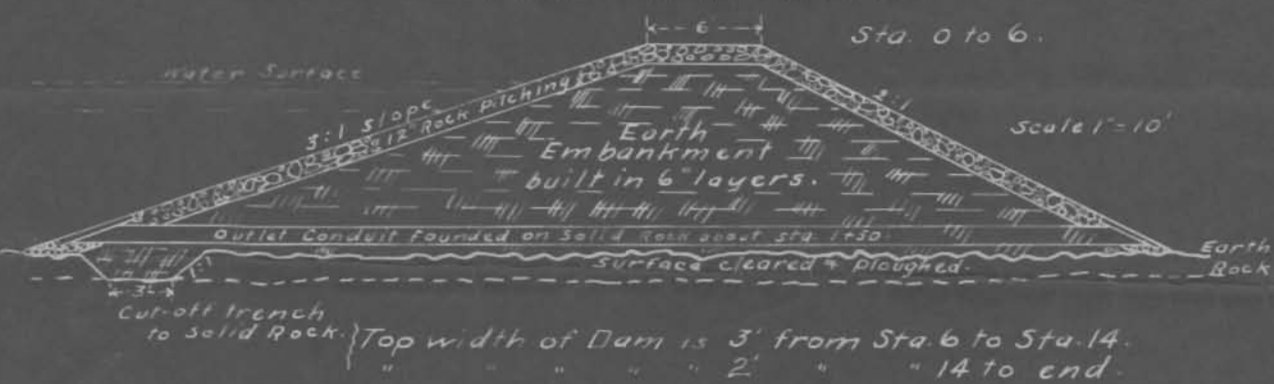 6
Sta. 0 to 6.
Water Surface
2:1
3:1 Slope.
12" Rock Pitching
Scale 1"=10'
Earth
Embankment
built in 6" layers.
Outlet Conduit Founded on Solid Rock about Sta. 1+50
Earth
Surface cleared & ploughed.
Rock
1:1
3'
Cut-off trench
to Solid Rock.
Top width of Dam is 3' from Sta. 6 to Sta. 14.
" " " " 2' " " 14 to end.